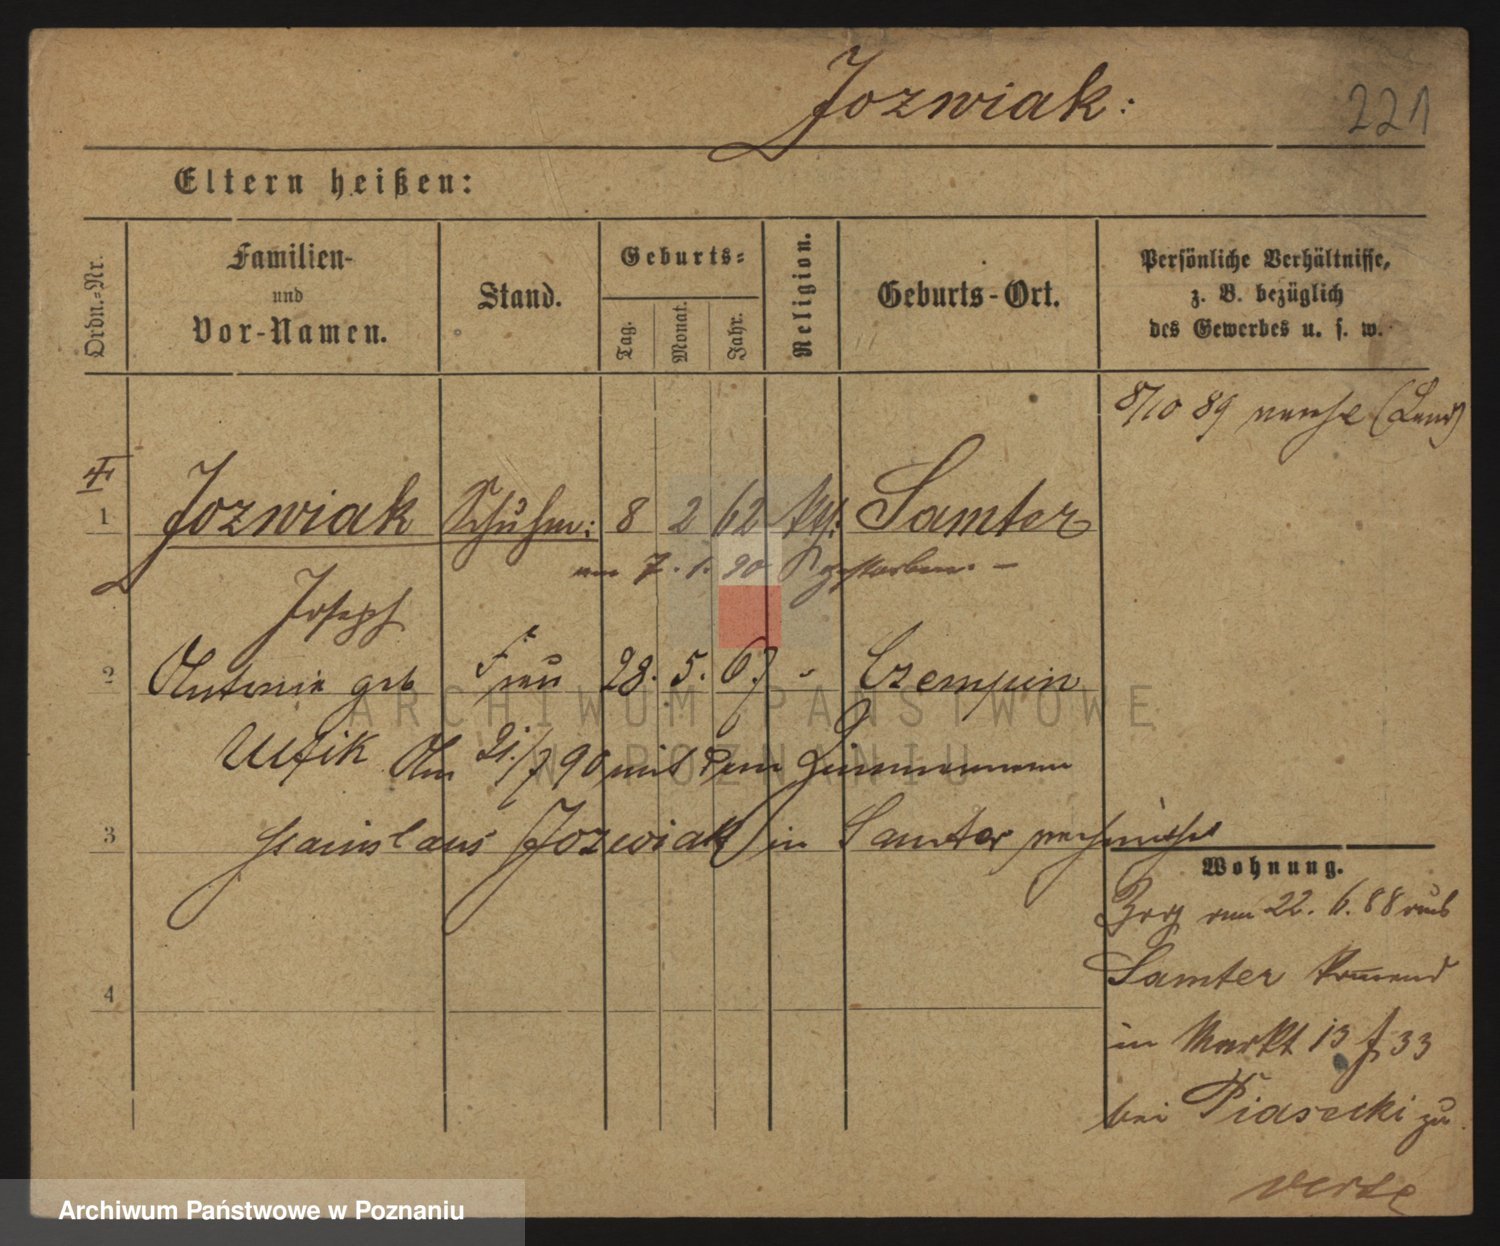 Jozwiak:
221
Eltern heißen:
Ordn.-Nr.
Familien-
und
Vor-Namen.
Stand.
Geburts-
Tag.
Monat.
Jahr.
Religion.
Geburts-Ort.
Persönliche Verhältnisse,
z. B. bezüglich
des Gewerbes u. s. w.
8/10 89
1 Jozwiak Schuhm: 8 2 62 Samter
am 7. 1. 90 gestorben. —
Joseph
2 Antonie geb Frau 28. 5. 67 " Czempin
Am 21/7 90 mit dem Zimmermann
3 Stanislaus Jozwiak in Samter
Wohnung.
Zog am 22. 6. 88 aus
Samter kommend
in Markt 13 f 33
4
bei Piasecki zu
verte
ARCHIWUM PAŃSTWOWE
W POZNANIU
Archiwum Państwowe w Poznaniu